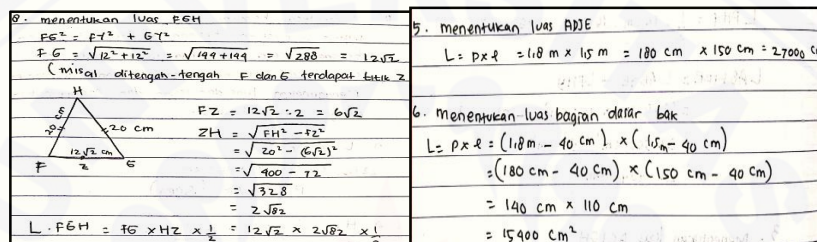 8. menentukan luas FGH
FG² = FY² + GY²
FG = √12² + 12² = √144+144 = √288 = 12√2
(misal ditengah-tengah F dan G terdapat titik Z
H
20
20 cm
12√2 cm
F Z G
FZ = 12√2 : 2 = 6√2
ZH = √FH² - FZ²
= √20² - (6√2)²
= √400 - 72
= √328
= 2√82
L. FGH = FG × HZ × 1/2 = 12√2 × 2√82 × 1
5. menentukan luas ADJE
L = p×l = 1,8 m × 1,5 m = 180 cm × 150 cm = 27000 c
6. menentukan luas bagian dasar bak
L = p×l = (1,8m - 40 cm) × (1,5m - 40 cm)
= (180 cm - 40 cm) × (150 cm - 40 cm)
= 140 cm × 110 cm
= 15400 cm²